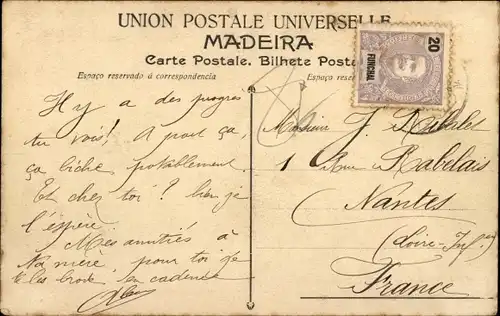 UNION POSTALE UNIVERSELLE
MADEIRA
Carte Postale. Bilhete Posta
Espaço reservado á correspondencia
Espaço rese
20
FUNCHAL
Il y a des progrès
tu vois! A part ça,
ça biche, probablement.
Et chez toi? bien je
l'espère.
Mes amitiés à
ta mère, pour toi je
te les brode en cadence
Monsieur J.
1 Rue Rabelais
Nantes
(Loire-Infre)
France